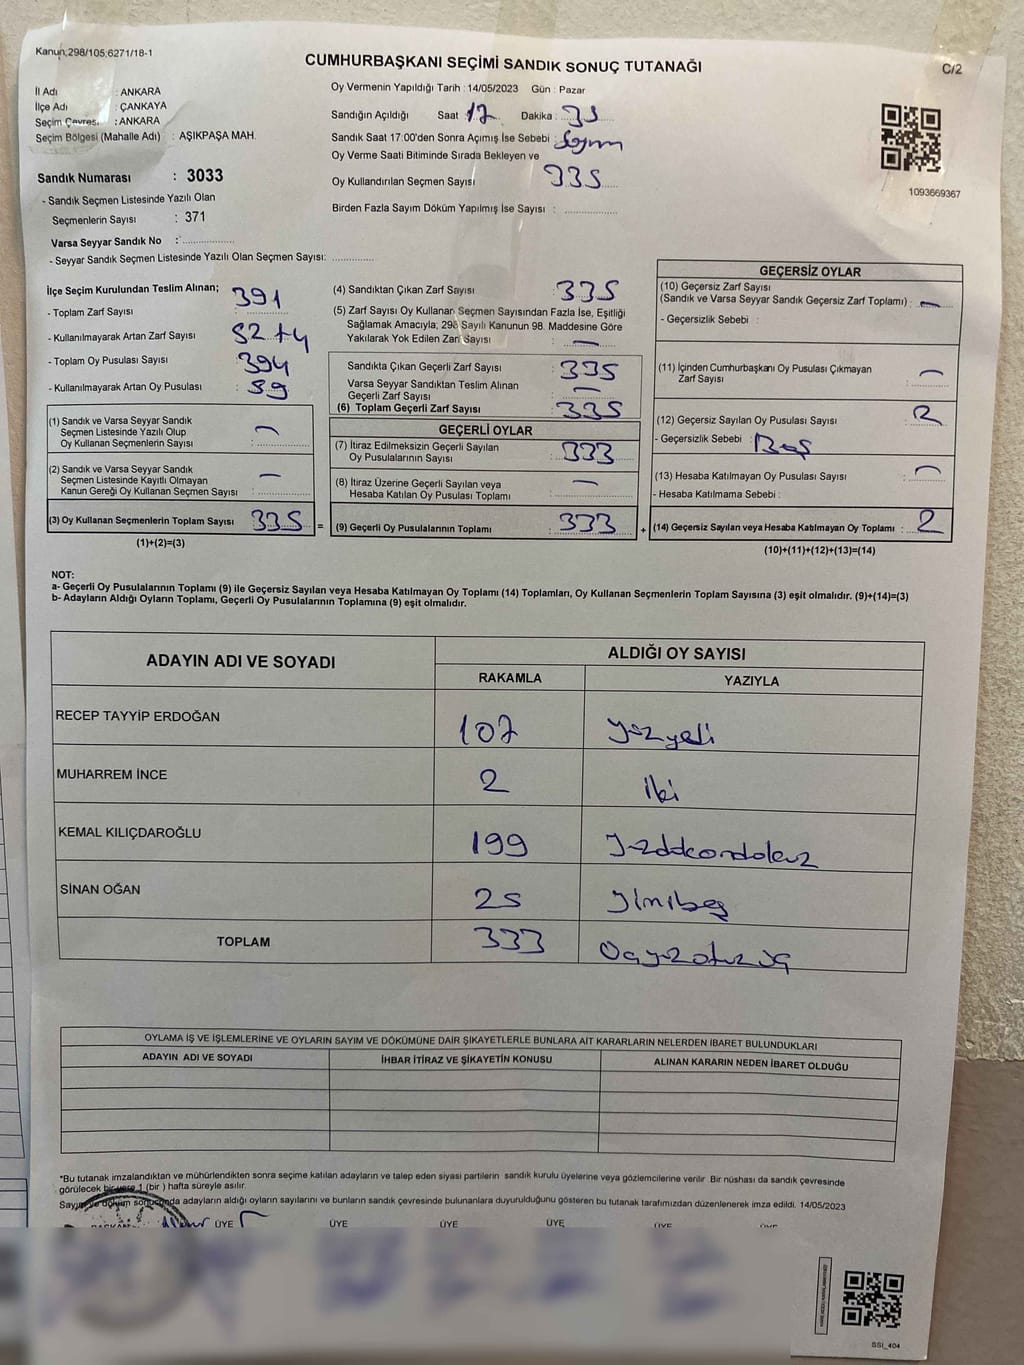 Kanun;298/105,6271/18-1
CUMHURBAŞKANI SEÇİMİ SANDIK SONUÇ TUTANAĞI
C/2
İl Adı : ANKARA
İlçe Adı : ÇANKAYA
Seçim Çevresi : ANKARA
Seçim Bölgesi (Mahalle Adı) : AŞIKPAŞA MAH.
Sandık Numarası : 3033
- Sandık Seçmen Listesinde Yazılı Olan
Seçmenlerin Sayısı : 371
Varsa Seyyar Sandık No :
- Seyyar Sandık Seçmen Listesinde Yazılı Olan Seçmen Sayısı:
Oy Vermenin Yapıldığı Tarih : 14/05/2023 Gün : Pazar
Sandığın Açıldığı Saat 17 Dakika : 35
Sandık Saat 17:00'den Sonra Açımış İse Sebebi : Sayım
Oy Verme Saati Bitiminde Sırada Bekleyen ve
Oy Kullandırılan Seçmen Sayısı 335
Birden Fazla Sayım Döküm Yapılmış İse Sayısı :
1093669367
İlçe Seçim Kurulundan Teslim Alınan;
- Toplam Zarf Sayısı : 391
- Kullanılmayarak Artan Zarf Sayısı : 52+4
- Toplam Oy Pusulası Sayısı : 394
- Kullanılmayarak Artan Oy Pusulası : 59
(1) Sandık ve Varsa Seyyar Sandık
Seçmen Listesinde Yazılı Olup
Oy Kullanan Seçmenlerin Sayısı : —
(2) Sandık ve Varsa Seyyar Sandık
Seçmen Listesinde Kayıtlı Olmayan
Kanun Gereği Oy Kullanan Seçmen Sayısı : —
(3) Oy Kullanan Seçmenlerin Toplam Sayısı 335 =
(1)+(2)=(3)
(4) Sandıktan Çıkan Zarf Sayısı : 335
(5) Zarf Sayısı Oy Kullanan Seçmen Sayısından Fazla İse, Eşitliği
Sağlamak Amacıyla; 298 Sayılı Kanunun 98. Maddesine Göre
Yakılarak Yok Edilen Zarf Sayısı : —
Sandıkta Çıkan Geçerli Zarf Sayısı : 335
Varsa Seyyar Sandıktan Teslim Alınan
Geçerli Zarf Sayısı : —
(6) Toplam Geçerli Zarf Sayısı : 335
GEÇERLİ OYLAR
(7) İtiraz Edilmeksizin Geçerli Sayılan
Oy Pusulalarının Sayısı : 333
(8) İtiraz Üzerine Geçerli Sayılan veya
Hesaba Katılan Oy Pusulası Toplamı : —
(9) Geçerli Oy Pusulalarının Toplamı : 333 +
GEÇERSİZ OYLAR
(10) Geçersiz Zarf Sayısı
(Sandık ve Varsa Seyyar Sandık Geçersiz Zarf Toplamı) : —
- Geçersizlik Sebebi :
(11) İçinden Cumhurbaşkanı Oy Pusulası Çıkmayan
Zarf Sayısı : —
(12) Geçersiz Sayılan Oy Pusulası Sayısı : 2
- Geçersizlik Sebebi : Boş
(13) Hesaba Katılmayan Oy Pusulası Sayısı : —
- Hesaba Katılmama Sebebi :
(14) Geçersiz Sayılan veya Hesaba Katılmayan Oy Toplamı : 2
(10)+(11)+(12)+(13)=(14)
NOT:
a- Geçerli Oy Pusulalarının Toplamı (9) ile Geçersiz Sayılan veya Hesaba Katılmayan Oy Toplamı (14) Toplamları, Oy Kullanan Seçmenlerin Toplam Sayısına (3) eşit olmalıdır. (9)+(14)=(3)
b- Adayların Aldığı Oyların Toplamı, Geçerli Oy Pusulalarının Toplamına (9) eşit olmalıdır.
ADAYIN ADI VE SOYADI
ALDIĞI OY SAYISI
RAKAMLA YAZIYLA
RECEP TAYYİP ERDOĞAN 107 yüzyedi
MUHARREM İNCE 2 iki
KEMAL KILIÇDAROĞLU 199
SİNAN OĞAN 25 yirmibeş
TOPLAM 333 üçyüzotuzüç
OYLAMA İŞ VE İŞLEMLERİNE VE OYLARIN SAYIM VE DÖKÜMÜNE DAİR ŞİKAYETLERLE BUNLARA AİT KARARLARIN NELERDEN İBARET BULUNDUKLARI
ADAYIN ADI VE SOYADI İHBAR İTİRAZ VE ŞİKAYETİN KONUSU ALINAN KARARIN NEDEN İBARET OLDUĞU
*Bu tutanak imzalandıktan ve mühürlendikten sonra seçime katılan adayların ve talep eden siyasi partilerin sandık kurulu üyelerine veya gözlemcilerine verilir. Bir nüshası da sandık çevresinde
görülecek bir yere 1 (bir ) hafta süreyle asılır.
Sayım ve döküm sonucunda adayların aldığı oyların sayılarını ve bunların sandık çevresinde bulunanlara duyurulduğunu gösteren bu tutanak tarafımızdan düzenlenerek imza edildi. 14/05/2023
BAŞKAN ÜYE ÜYE ÜYE ÜYE ÜYE ÜYE
SSI_404